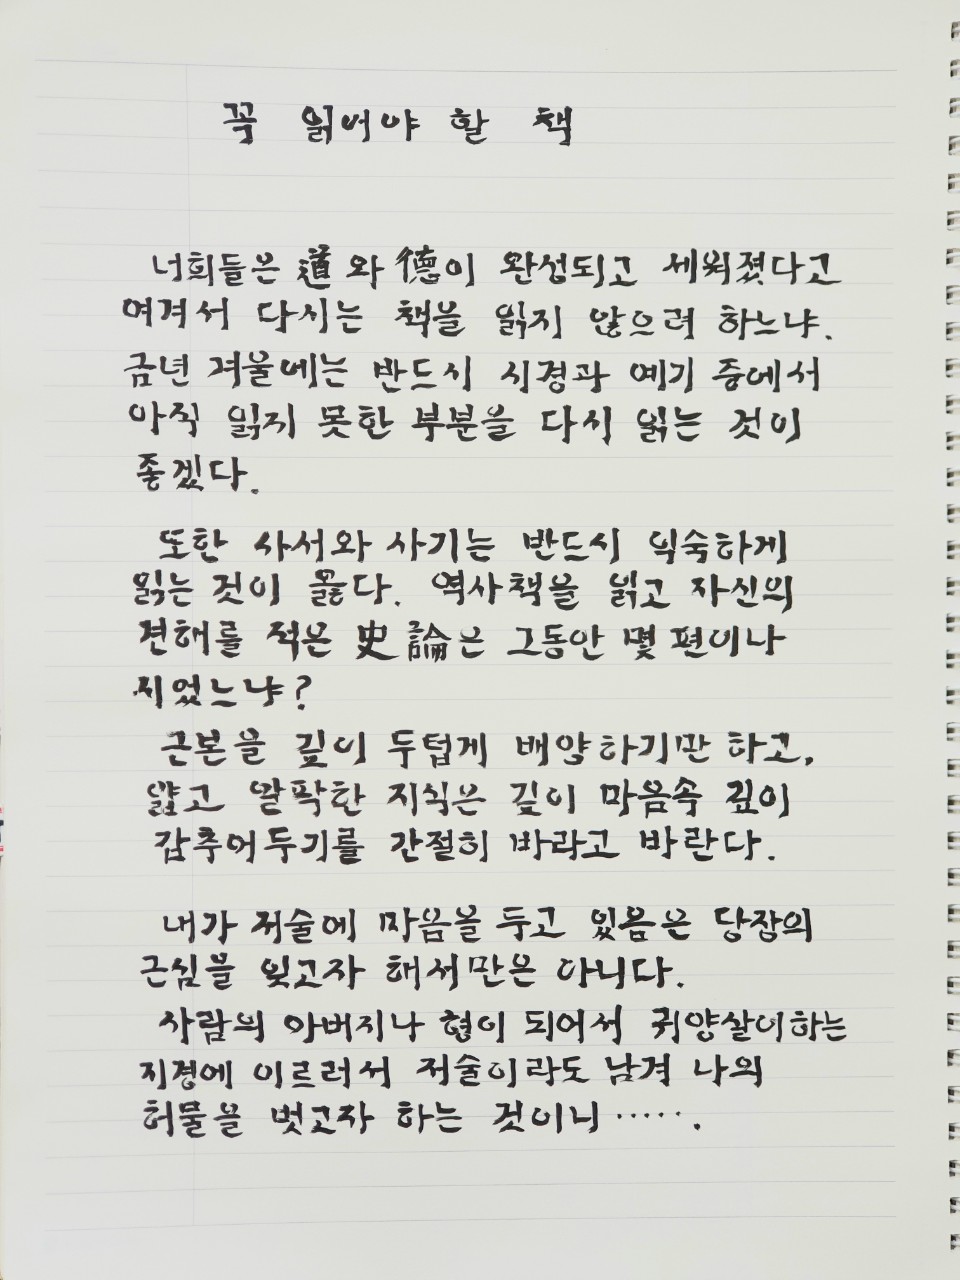 꼭 읽어야 할 책
너희들은 道와 德이 완성되고 세워졌다고
여겨서 다시는 책을 읽지 않으려 하느냐.
금년 겨울에는 반드시 시경과 예기 중에서
아직 읽지 못한 부분을 다시 읽는 것이
좋겠다.
또한 사서와 사기는 반드시 익숙하게
읽는 것이 옳다. 역사책을 읽고 자신의
견해를 적은 史論은 그동안 몇 편이나
지었느냐?
근본을 깊이 두텁게 배양하기만 하고,
얇고 얄팍한 지식은 깊이 마음속 깊이
감추어두기를 간절히 바라고 바란다.
내가 저술에 마음을 두고 있음은 당장의
근심을 잊고자 해서만은 아니다.
사람의 아버지나 형이 되어서 귀양살이하는
지경에 이르러서 저술이라도 남겨 나의
허물을 벗고자 하는 것이니 ······.